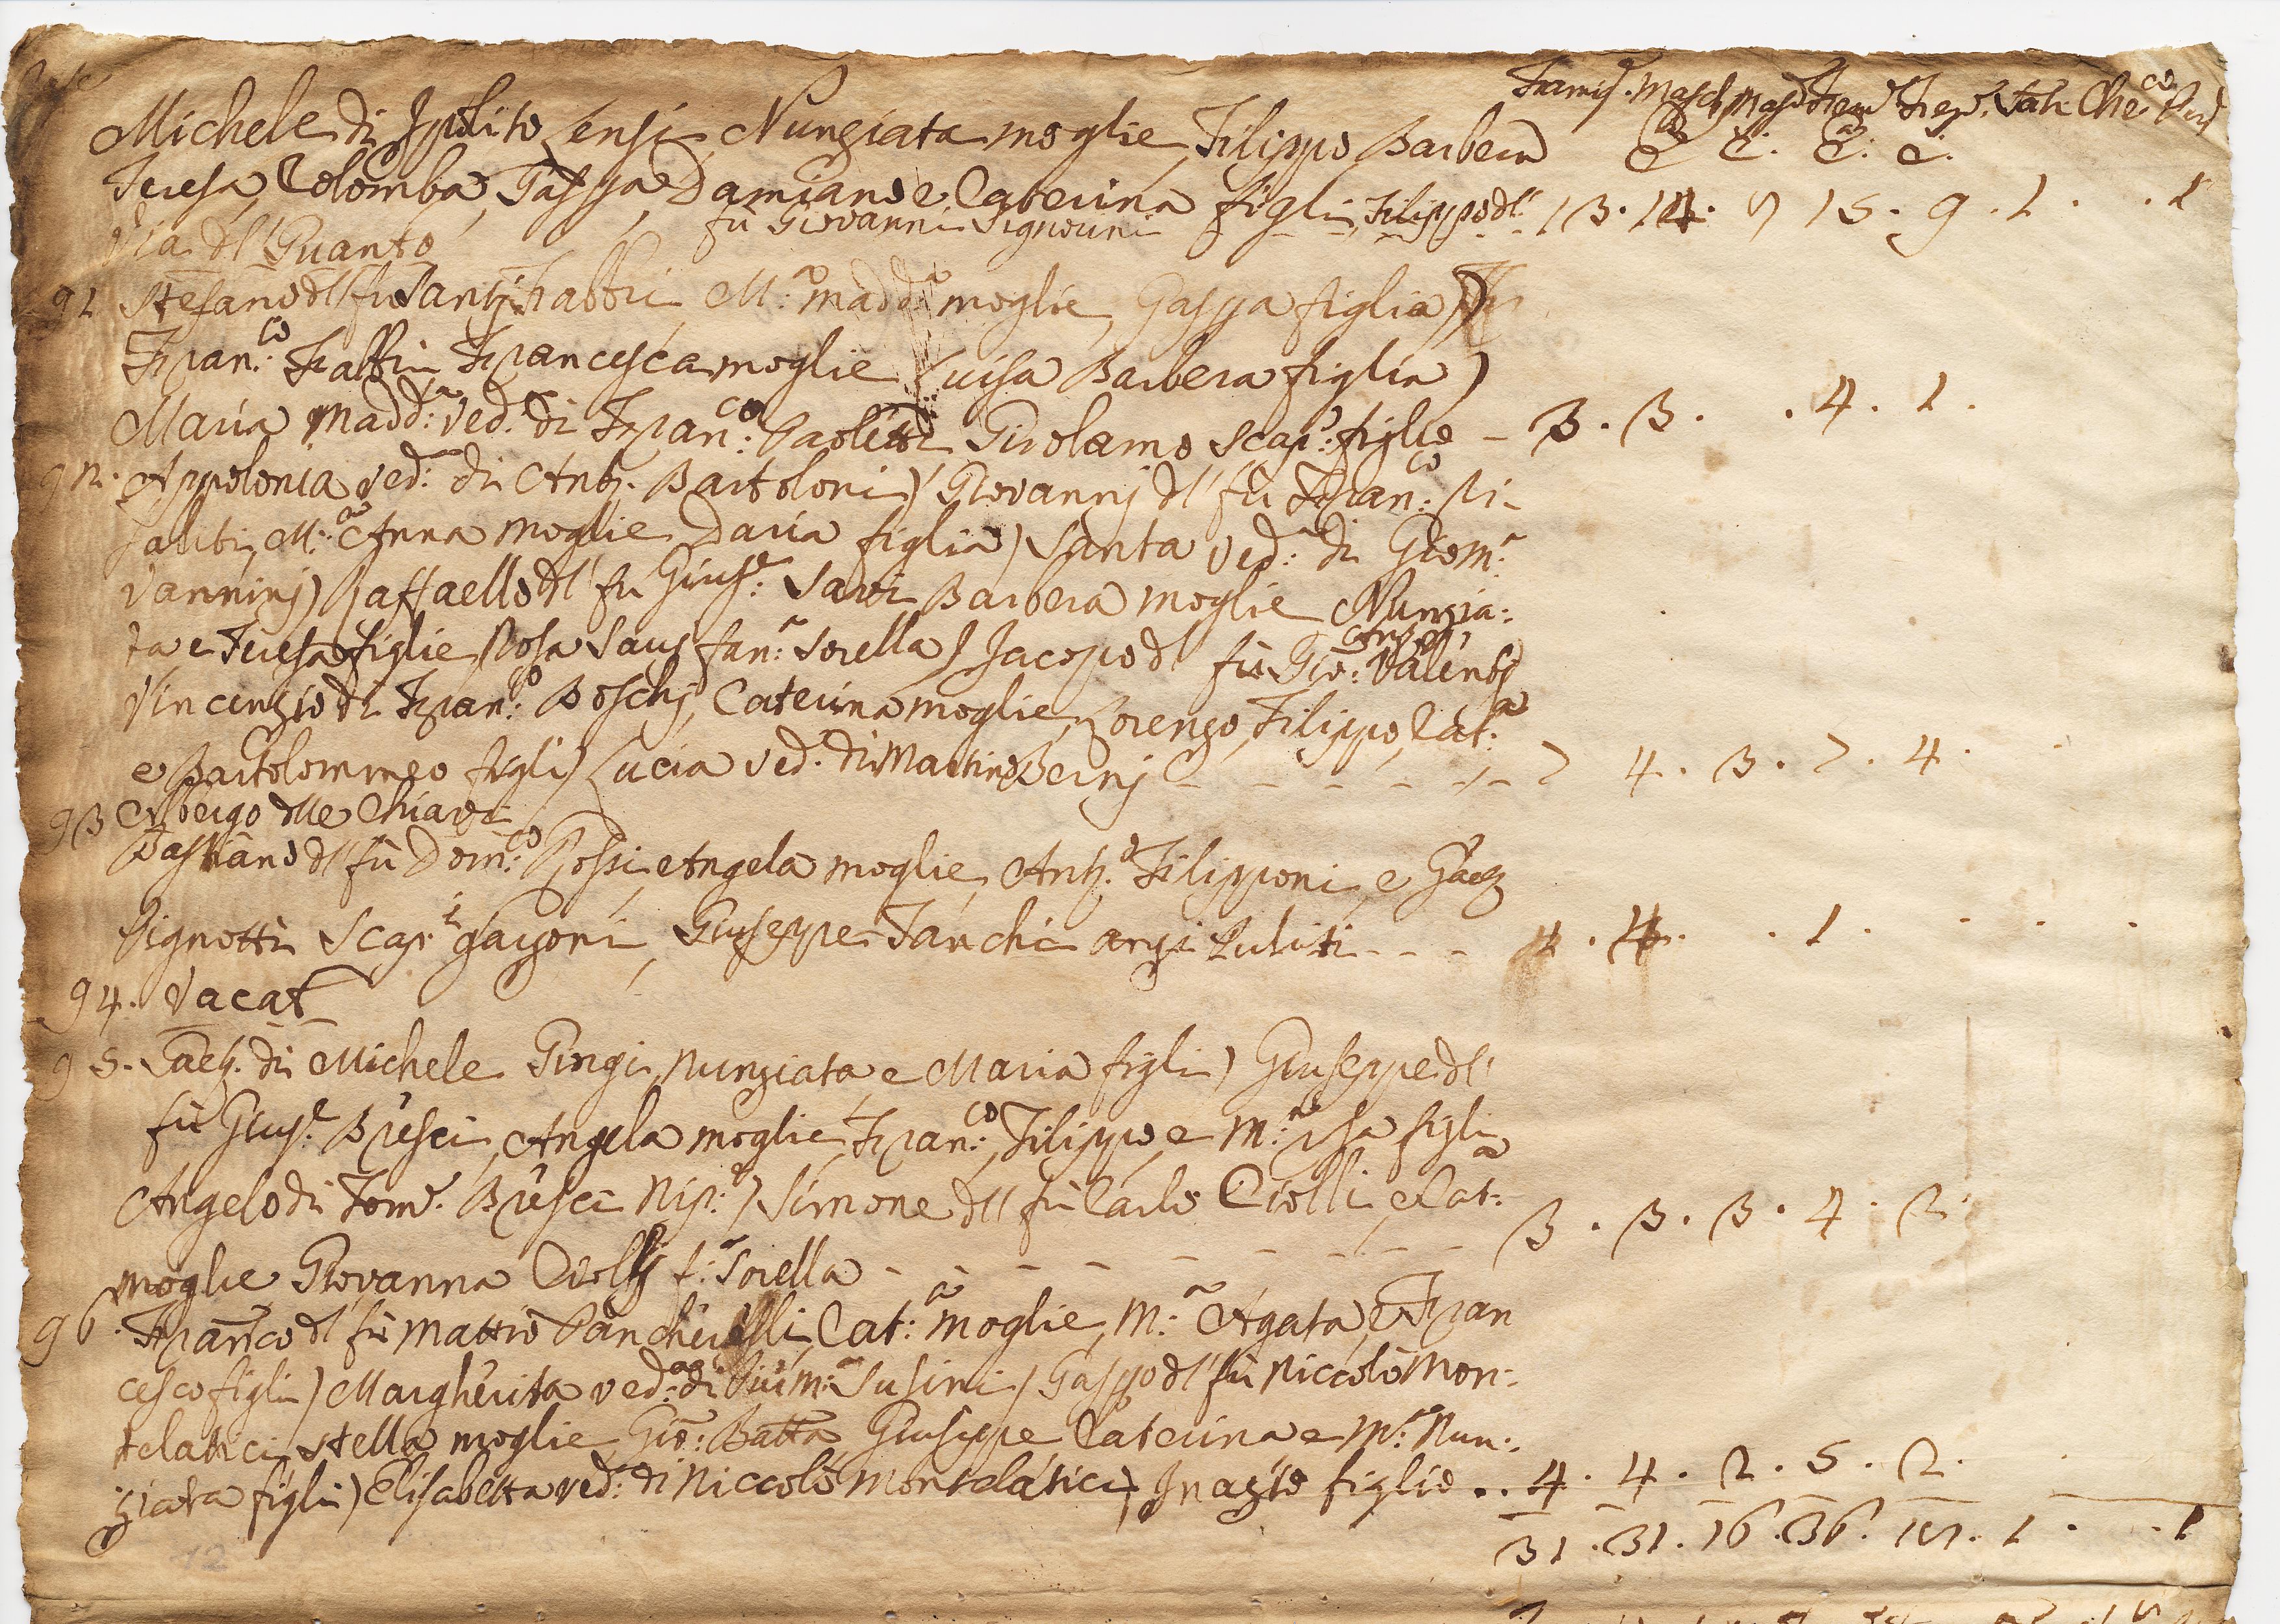 Famig.e Masch. Masch. Fem. Fem. Sac. Che.ci
Michele di Ipolito Lensi, Nunziata moglie, Filippo Barbera C. C. C. C.
Teresa, Colomba, Gaspa, Damiano e Caterina figli, Filippo dl' 13. 14. 15. 9. 1. . . 1
fu Giovanni Signorini
Via dl' Guanto
91 Stefano dl' fu Santi M.a Madd.a moglie, Gaspa figlia)
Fran.co Francesca moglie Luisa Barbera figlia)
Maria Madd.a ved. di Fran.co Paoletti Girolamo Scap. figlio - 3. 3. . 4. 1.
92. Appolonia ved. di Ant. Bartoloni) Giovannj dl' fu Fran.co Ri-
saliti, M.a Anna moglie Daria figlia) Santa ved.a di Giom.a
Vanninj) Raffaello dl' fu Gius.e Savi Barbera moglie Nunzia:
ta e Teresa figlie Rosa Savi fan.a Sorella) Jacopo dl' fu Gio: Valentj
Vincenzio di Fran.co Boschj, Caterina moglie, Lorenzo, Filippo, Cat.a
e Bartolommeo figli) Lucia ved. di Martino Bernj - - - - - - 7 4. 3. 7. 4.
93 Albergo dlle Chiavi
Bastiano dl' fu Dom.co Rossi Angela moglie, Ant.o Filipponi, e Gaet
Pignotti Scap.i garzoni, Giuseppe - - - 4. 4. . 1. . . .
94. Vacat
95. Gaet. di Michele Gingi, Nunziata e Maria figli) Giuseppe dl'
fu Gius.e Bresci, Angela moglie, Fran.co, Filippo, e M.a figli
Angelo di Tom.o Bresci Nip.e) Simone dll fu Carlo Ciolli, e Cat.a
moglie Giovanna Ciolli f.a Sorella - - - - - - - - 3. 3. 3. 4. 2.
96. Fran.co dl' fu Mattio Pancherelli, Cat.a moglie, M.a Agata, e Fran
cesco figli) Margherita ved.a di Susini) Gaspo dl' fu Niccolò Mon:
telatici Stella moglie, Gio: Batta Giuseppe Caterina e M.a Nun:
ziata figli) Elisabetta ved: di Niccolò Montelatici, Inazio figlio .. 4. 4. 2. 5. 2.
31. 31. 16. 36. . 1. . 1